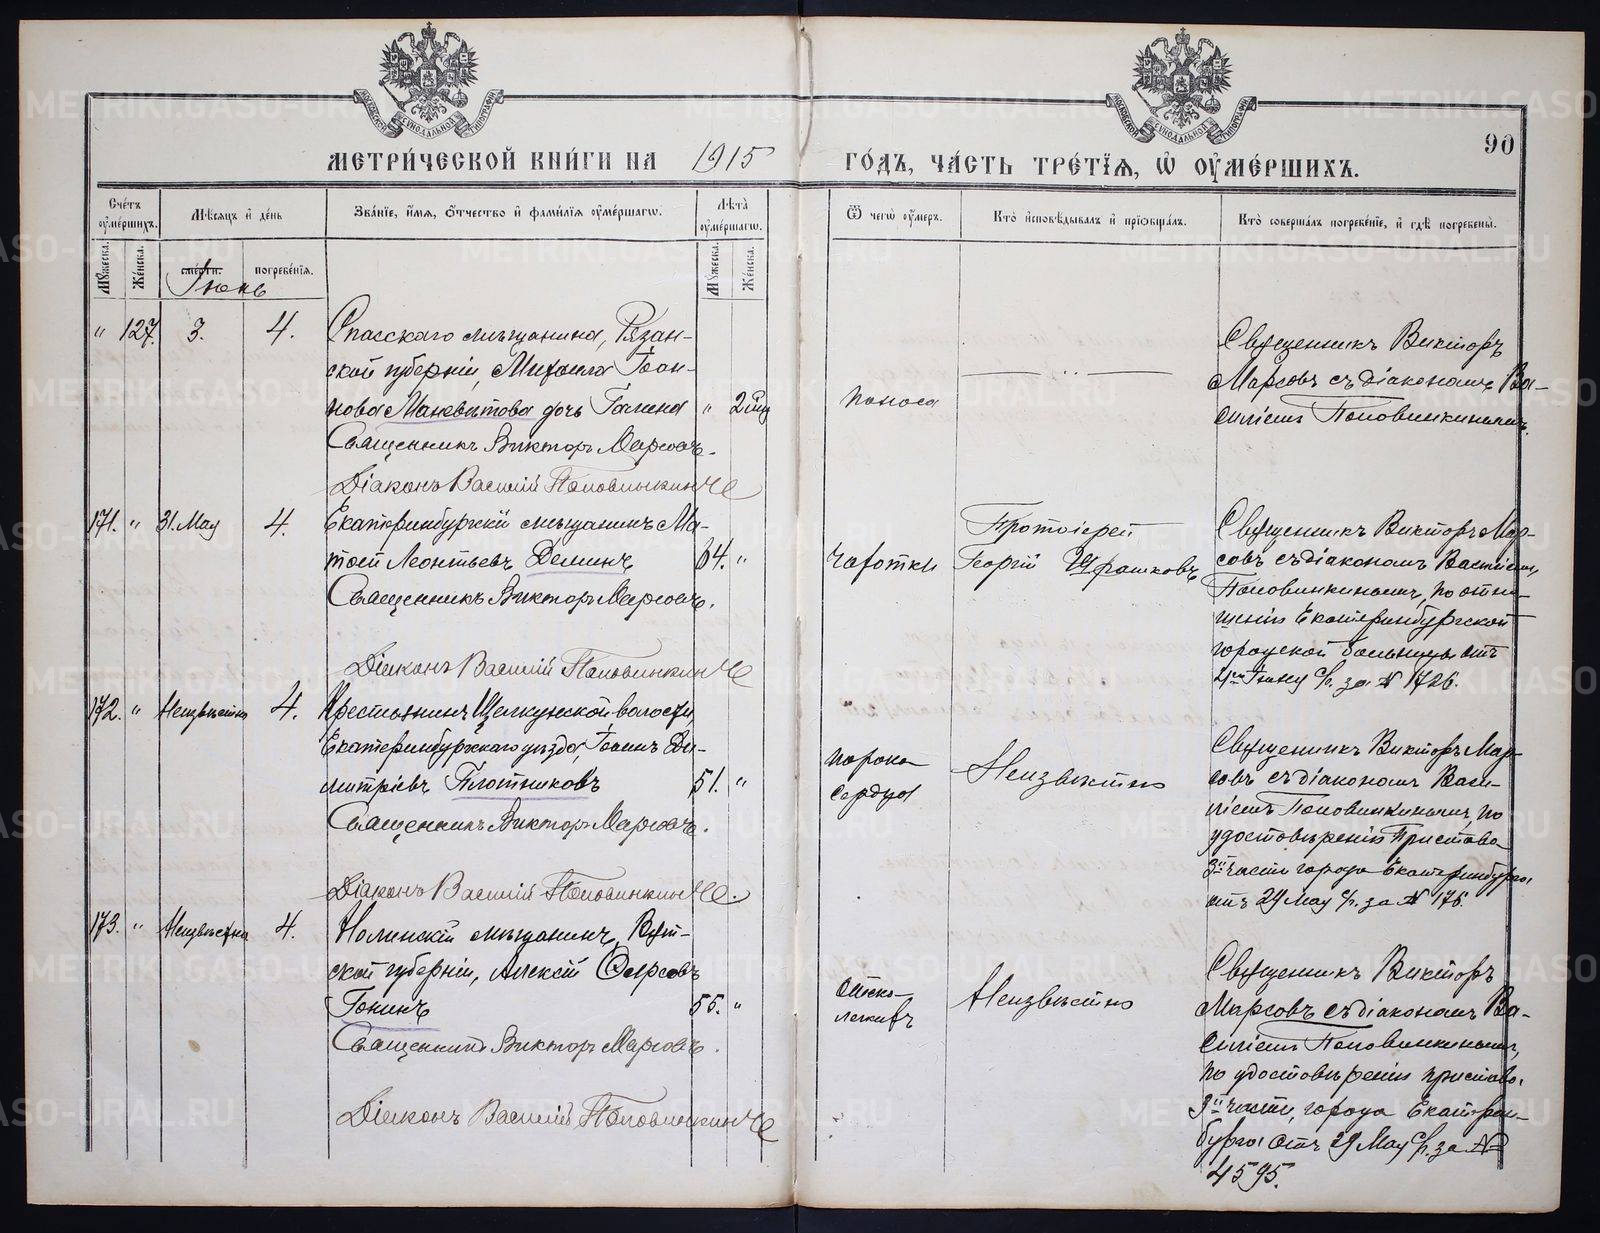 МЕТРИ́ЧЕСКОЙ КНИ́ГИ НА 1915 ГО́ДЪ, ЧА́СТЬ ТРЕ́ТЇѦ, Ѡ҆ ОУ҆МЕ́РШИХЪ.
90
Сче́тъ оу҆ме́ршихъ.
Мѣ́сяцъ и҆ де́нь
Зва́нїе, и҆́мѧ, ѻ҆́тчество и҆ фами́лїѧ оу҆ме́ршагѡ.
Лѣ́та оу҆ме́ршагѡ.
Ѿ чегѡ̀ оу҆́меръ.
Кто̀ и҆сповѣ́дывалъ и҆ прїѻбща́лъ.
Кто̀ соверша́лъ погребе́нїе, и҆ гдѣ̀ погребены̀.
Мꙋ́жеска.
Же́нска.
сме́рти.
погребе́нїѧ.
Мꙋ́жеска.
Же́нска.
Іюнь
" 127. 3. 4.
Спасскаго мѣщанина, Рязан-
ской губерніи, Михаила Іоан-
нова Маквѣтова дочь Галина " 2
Священникъ Викторъ Марсовъ.
Діаконъ Василій Половинкинъ
поноса
Священникъ Викторъ
Марсовъ съ діакономъ Ва-
силіемъ Половинкинымъ.
171. " 31. Мая 4.
Екатеринбургскій мѣщанинъ Ма-
тѳей Леонтьевъ Деминъ 64. "
Священникъ Викторъ Марсовъ.
Діаконъ Василій Половинкинъ
чахотки
Протоіерей
Георгій
Священникъ Викторъ Мар-
совъ съ діакономъ Василіемъ
Половинкинымъ, по отно-
шенію Екатеринбургской
городской больницы отъ
4го Іюня с/г. за № 1726.
172. " Неизвѣстно 4.
Крестьянинъ Щелкунской волости,
Екатеринбургскаго уѣзда, Іоаннъ Ди-
митріевъ Плотниковъ 51. "
Священникъ Викторъ Марсовъ.
Діаконъ Василій Половинкинъ.
порока
сердца
Неизвѣстно
Священникъ Викторъ Мар-
совъ съ діакономъ Васи-
ліемъ Половинкинымъ, по
удостовѣренію Пристава
3й части города Екатеринбурга
отъ 29 Мая с/г. за № 176.
173. " Неизвѣстно 4.
Нолинскій мѣщанинъ, Вят-
ской губерніи, Алексій
Гонинъ 55. "
Священникъ Викторъ Марсовъ.
Діаконъ Василій Половинкинъ
отека
легкихъ
Неизвѣстно
Священникъ Викторъ
Марсовъ съ діакономъ Ва-
силіемъ Половинкинымъ,
по удостовѣренію пристава
3й части, города Екатерин-
бурга отъ 29 Мая с/г. за №
4595.
METRIKI.GASO-URAL.RU